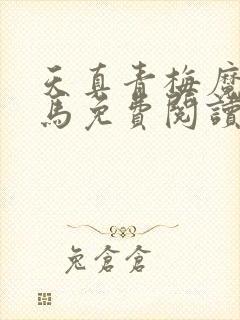 天真青梅魔
馬免費閱讀
兔倉倉